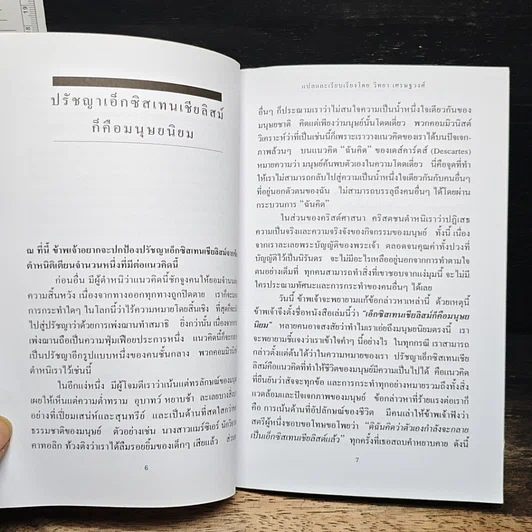 ปรัชญาเอ็กซิสเทนเชียลิสม์
ก็คือมนุษยนิยม
ณ ที่นี้ ข้าพเจ้าอยากจะปกป้องปรัชญาเอ็กซิสเทนเชียลิสม์จากข้อ
ตำหนิติเตียนจำนวนหนึ่งที่มีต่อแนวคิดนี้
ก่อนอื่น มีผู้ตำหนิว่าแนวคิดนี้ชักจูงคนให้ยอมจำนน
ความสิ้นหวัง เนื่องจากทางออกทุกทางถูกปิดตาย เราก็จะ
การกระทำใดๆ ในโลกนี้ว่าไร้ความหมายโดยสิ้นเชิง ที่สุดก็จะ
ไปสู่ปรัชญาว่าด้วยการเพ่งฌานทำสมาธิ ยิ่งกว่านั้น เนื่องจาก
เพ่งฌานถือเป็นความฟุ่มเฟือยประการหนึ่ง แนวคิดนี้ก็จะ
เป็นปรัชญาอีกรูปแบบหนึ่งของคนชั้นกลาง พวกคอมมิวนิสต์
ตำหนิเราไว้เช่นนี้
ในอีกแง่หนึ่ง มีผู้โจมตีเราว่าเน้นแต่ทรลักษณ์ของมนุษย์
เผยให้เห็นแต่ความต่ำทราม อุบาทว์ หยาบช้า ละเลยบางสิ่ง
อย่างที่เปี่ยมเสน่ห์และสุนทรีย์ และเป็นด้านที่สดใสกว่าของ
ธรรมชาติของมนุษย์ ตัวอย่างเช่น นางสาวแมร์ซิเอร์ นักวิจารณ์
คาทอลิก ท้วงติงว่าเราได้ลืมรอยยิ้มของเด็กๆ เสียแล้ว
6
แปลและเรียบเรียงโดย วิทยา เศรษฐวงศ์
อื่นๆ ก็ประณามเราว่าไม่สนใจความเป็นน้ำหนึ่งใจเดียวกันของ
มนุษยชาติ คิดแต่เพียงว่ามนุษย์นั้นโดดเดี่ยว พวกคอมมิวนิสต์
วิเคราะห์ว่าที่เป็นเช่นนี้ก็เพราะเราวางแนวคิดของเราไว้บนปัจเจก-
ภาพล้วนๆ บนแนวคิด “ฉันคิด” ของเดส์คาร์ตส์ (Descartes)
หมายความว่า มนุษย์ค้นพบตัวเองในความโดดเดี่ยว นี่คือจุดที่ทำ
ให้เราไม่สามารถกลับไปสู่ความเป็นน้ำหนึ่งใจเดียวกับคนอื่นๆ
ที่อยู่นอกตัวตนของฉัน ไม่สามารถบรรลุถึงคนอื่นๆ ได้โดยผ่าน
กระบวนการ “ฉันคิด”
ในส่วนของคริสต์ศาสนา คริสตชนตำหนิเราว่าปฏิเสธ
ความเป็นจริงและความจริงจังของกิจกรรมของมนุษย์ ทั้งนี้ เนื่อง
จากเราละเลยพระบัญญัติของพระเจ้า ตลอดจนคุณค่าทั้งปวงที่
บัญญัติไว้เป็นนิรันดร จะไม่มีอะไรเหลืออยู่นอกจากการทำตามใจ
ตนอย่างเต็มที่ ทุกคนสามารถทำสิ่งที่เขาชอบจากแง่มุมนี้ จะไม่มี
ใครประณามทัศนะและการกระทำของคนอื่นๆ ได้เลย
วันนี้ ข้าพเจ้าจะพยายามแก้ข้อกล่าวหาเหล่านี้ ด้วยเหตุนี้
ข้าพเจ้าจึงตั้งชื่อหนังสือเล่มนี้ว่า “เอ็กซิสเทนเชียลิสม์ก็คือมนุษย
นิยม” หลายคนอาจสงสัยว่าทำไมเราเอ่ยถึงมนุษยนิยมตรงนี้ เรา
จะพยายามชี้แจงว่าเราเข้าใจคำๆ นี้อย่างไร ในทุกกรณี เราสามารถ
กล่าวตั้งแต่ต้นได้ว่าในความหมายของเรา ปรัชญาเอ็กซิสเทนเชีย
ลิสม์ เป็นแนวคิดที่ทำให้ชีวิตของมนุษย์มีความเป็นไปได้ คือแนวคิด
ที่ยืนยันว่าสัจจะทุกข้อ และการกระทำทุกอย่างหมายรวมถึงทั้งสิ่ง
แวดล้อมและปัจเจกภาพของมนุษย์ ข้อกล่าวหาที่ร้ายแรงต่อเราก็
คือ การเน้นด้านที่อัปลักษณ์ของชีวิต มีคนเล่าให้ข้าพเจ้าฟังว่า
สตรีผู้หนึ่งชอบขอโทษขอโพยว่า “ดิฉันคิดว่าตัวเองกำลังจะกลาย
เป็นเอ็กซิสเทนเชียลิสต์แล้ว” ทุกครั้งที่เธอสบถคำหยาบคาย ดังนี้
7